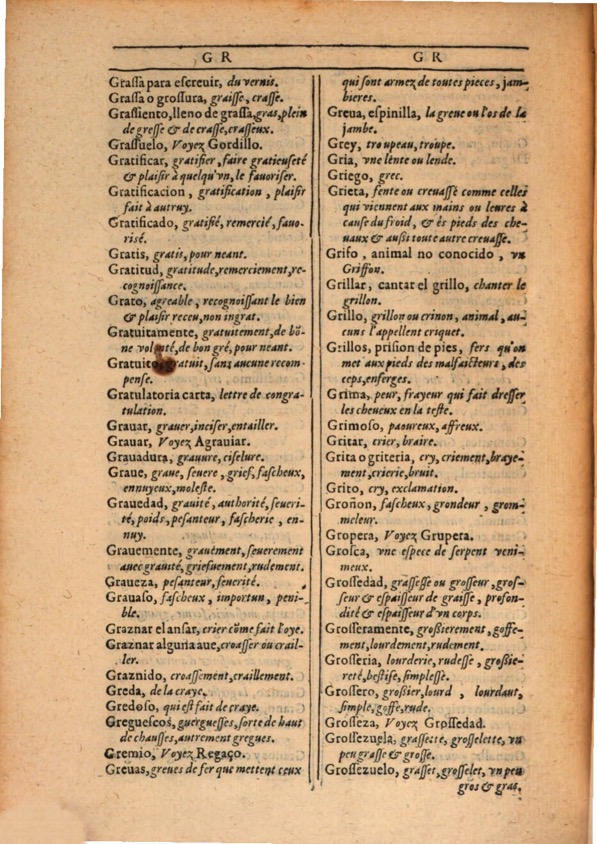 GR
Grassa para escreuir, du vernis.
Grassa o grossura, graisse, crasse.
Grassiento, lleno de grassa, gras, plein
de gresse & de crasse, crasseux.
Grassuelo, Voyez Gordillo.
Gratificar, gratifier, faire gratieuseté
& plaisir à quelqu'vn, le fauoriser.
Gratificacion, gratification, plaisir
fait à autruy.
Gratificado, gratifié, remercié, fauo-
risé.
Gratis, gratis, pour neant.
Gratitud, gratitude, remerciement, re-
cognoissance.
Grato, agreable, recognoissant le bien
& plaisir receu, non ingrat.
Gratuitamente, gratuitement, de bõ-
ne volonté, de bon gré, pour neant.
Gratuito, gratuit, sans aucune recom-
pense.
Gratulatoria carta, lettre de congra-
tulation.
Grauar, grauer, inciser, entailler.
Grauar, Voyez Agrauiar.
Grauadura, grauure, ciselure.
Graue, graue, seuere, grief, fascheux,
ennuyeux, moleste.
Grauedad, grauité, authorité, seueri-
té, poids, pesanteur, fascherie, en-
nuy.
Grauemente, grauément, seuerement
auec grauité, griefuement, rudement.
Graueza, pesanteur, seuerité.
Grauaso, fascheux, importun, peni-
ble.
Graznar el ansar, crier cõme fait l'oye.
Graznar alguria aue, croasser ou crail-
ler.
Graznido, croassement, craillement.
Greda, de la craye.
Gredoso, qui est fait de craye.
Greguescos, guerguesses, sorte de haut
de chausses, autrement gregues.
Gremio, Voyez Regaço.
Greuas, greues de fer que mettent ceux
GR
qui sont armez de toutes pieces, jam-
bieres.
Greua, espinilla, la greue ou l'os de la
jambe.
Grey, troupeau, troupe.
Gria, vne lente ou lende.
Griego, grec.
Grieta, fente ou creuasse comme celles
qui viennent aux mains ou leures à
cause du froid, & és pieds des che-
uaux & aussi toute autre creuasse.
Grifo, animal no conocido, vn
Griffon.
Grillar, cantar el grillo, chanter le
grillon.
Grillo, grillon ou crinon, animal, au-
cuns l'appellent criquet.
Grillos, prision de pies, fers qu'on
met aux pieds des malfaicteurs, des
ceps, enferges.
Grima, peur, frayeur qui fait dresser
les cheueux en la teste.
Grimoso, paoureux, affreux.
Gritar, crier, braire.
Grita o griteria, cry, criement, braye-
ment, crierie, bruit.
Grito, cry, exclamation.
Groñon, fascheux, grondeur, grom-
meleur.
Gropera, Voyez Grupera.
Grosca, vne espece de serpent veni-
meux.
Grossedad, grassesse ou grosseur, gros-
seur & espaisseur de graisse, profon-
dité & espaisseur d'vn corps.
Grosseramente, grossierement, goffe-
ment, lourdement, rudement.
Grosseria, lourderie, rudesse, grossie-
reté, bestise, simplesse.
Grossero, grossier, lourd, lourdaut,
simple, goffe, rude.
Grosseza, Voyez Grossedad.
Grossezuela, grassette, grosselette, vn
peu grasse & grosse.
Grossezuelo, grasset, grosselet, vn peu
gros & gras.